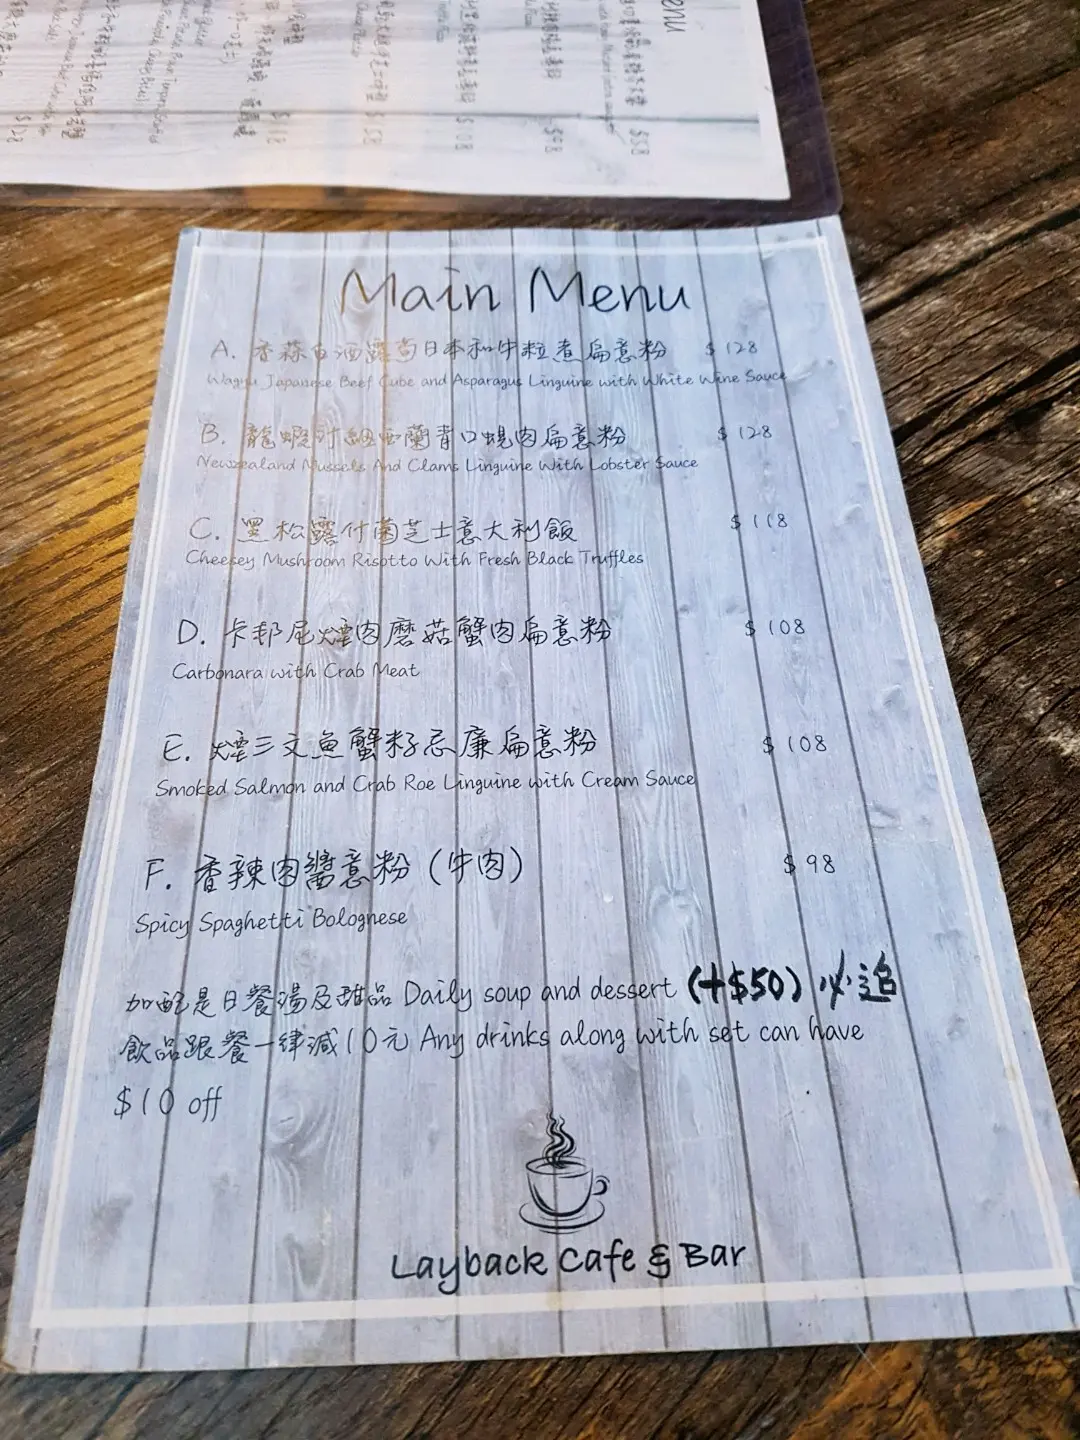 Main Menu
A. 香蒜白酒露荀日本和牛粒煮扁意粉 $128
Wagyu Japanese Beef Cube and Asparagus Linguine with White Wine Sauce
B. 龍蝦汁紐西蘭青口蜆肉扁意粉 $128
Newzealand Mussels And Clams Linguine With Lobster Sauce
C. 黑松露什菌芝士意大利飯 $118
Cheesey Mushroom Risotto With Fresh Black Truffles
D. 卡邦尼煙肉磨菇蟹肉扁意粉 $108
Carbonara with Crab Meat
E. 煙三文魚蟹籽忌廉扁意粉 $108
Smoked Salmon and Crab Roe Linguine with Cream Sauce
F. 香辣肉醬意粉 (牛肉) $98
Spicy Spaghetti Bolognese
加配是日餐湯及甜品 Daily soup and dessert (+$50) 必追
飲品跟餐一律減10元 Any drinks along with set can have
$10 off
Layback Cafe & Bar